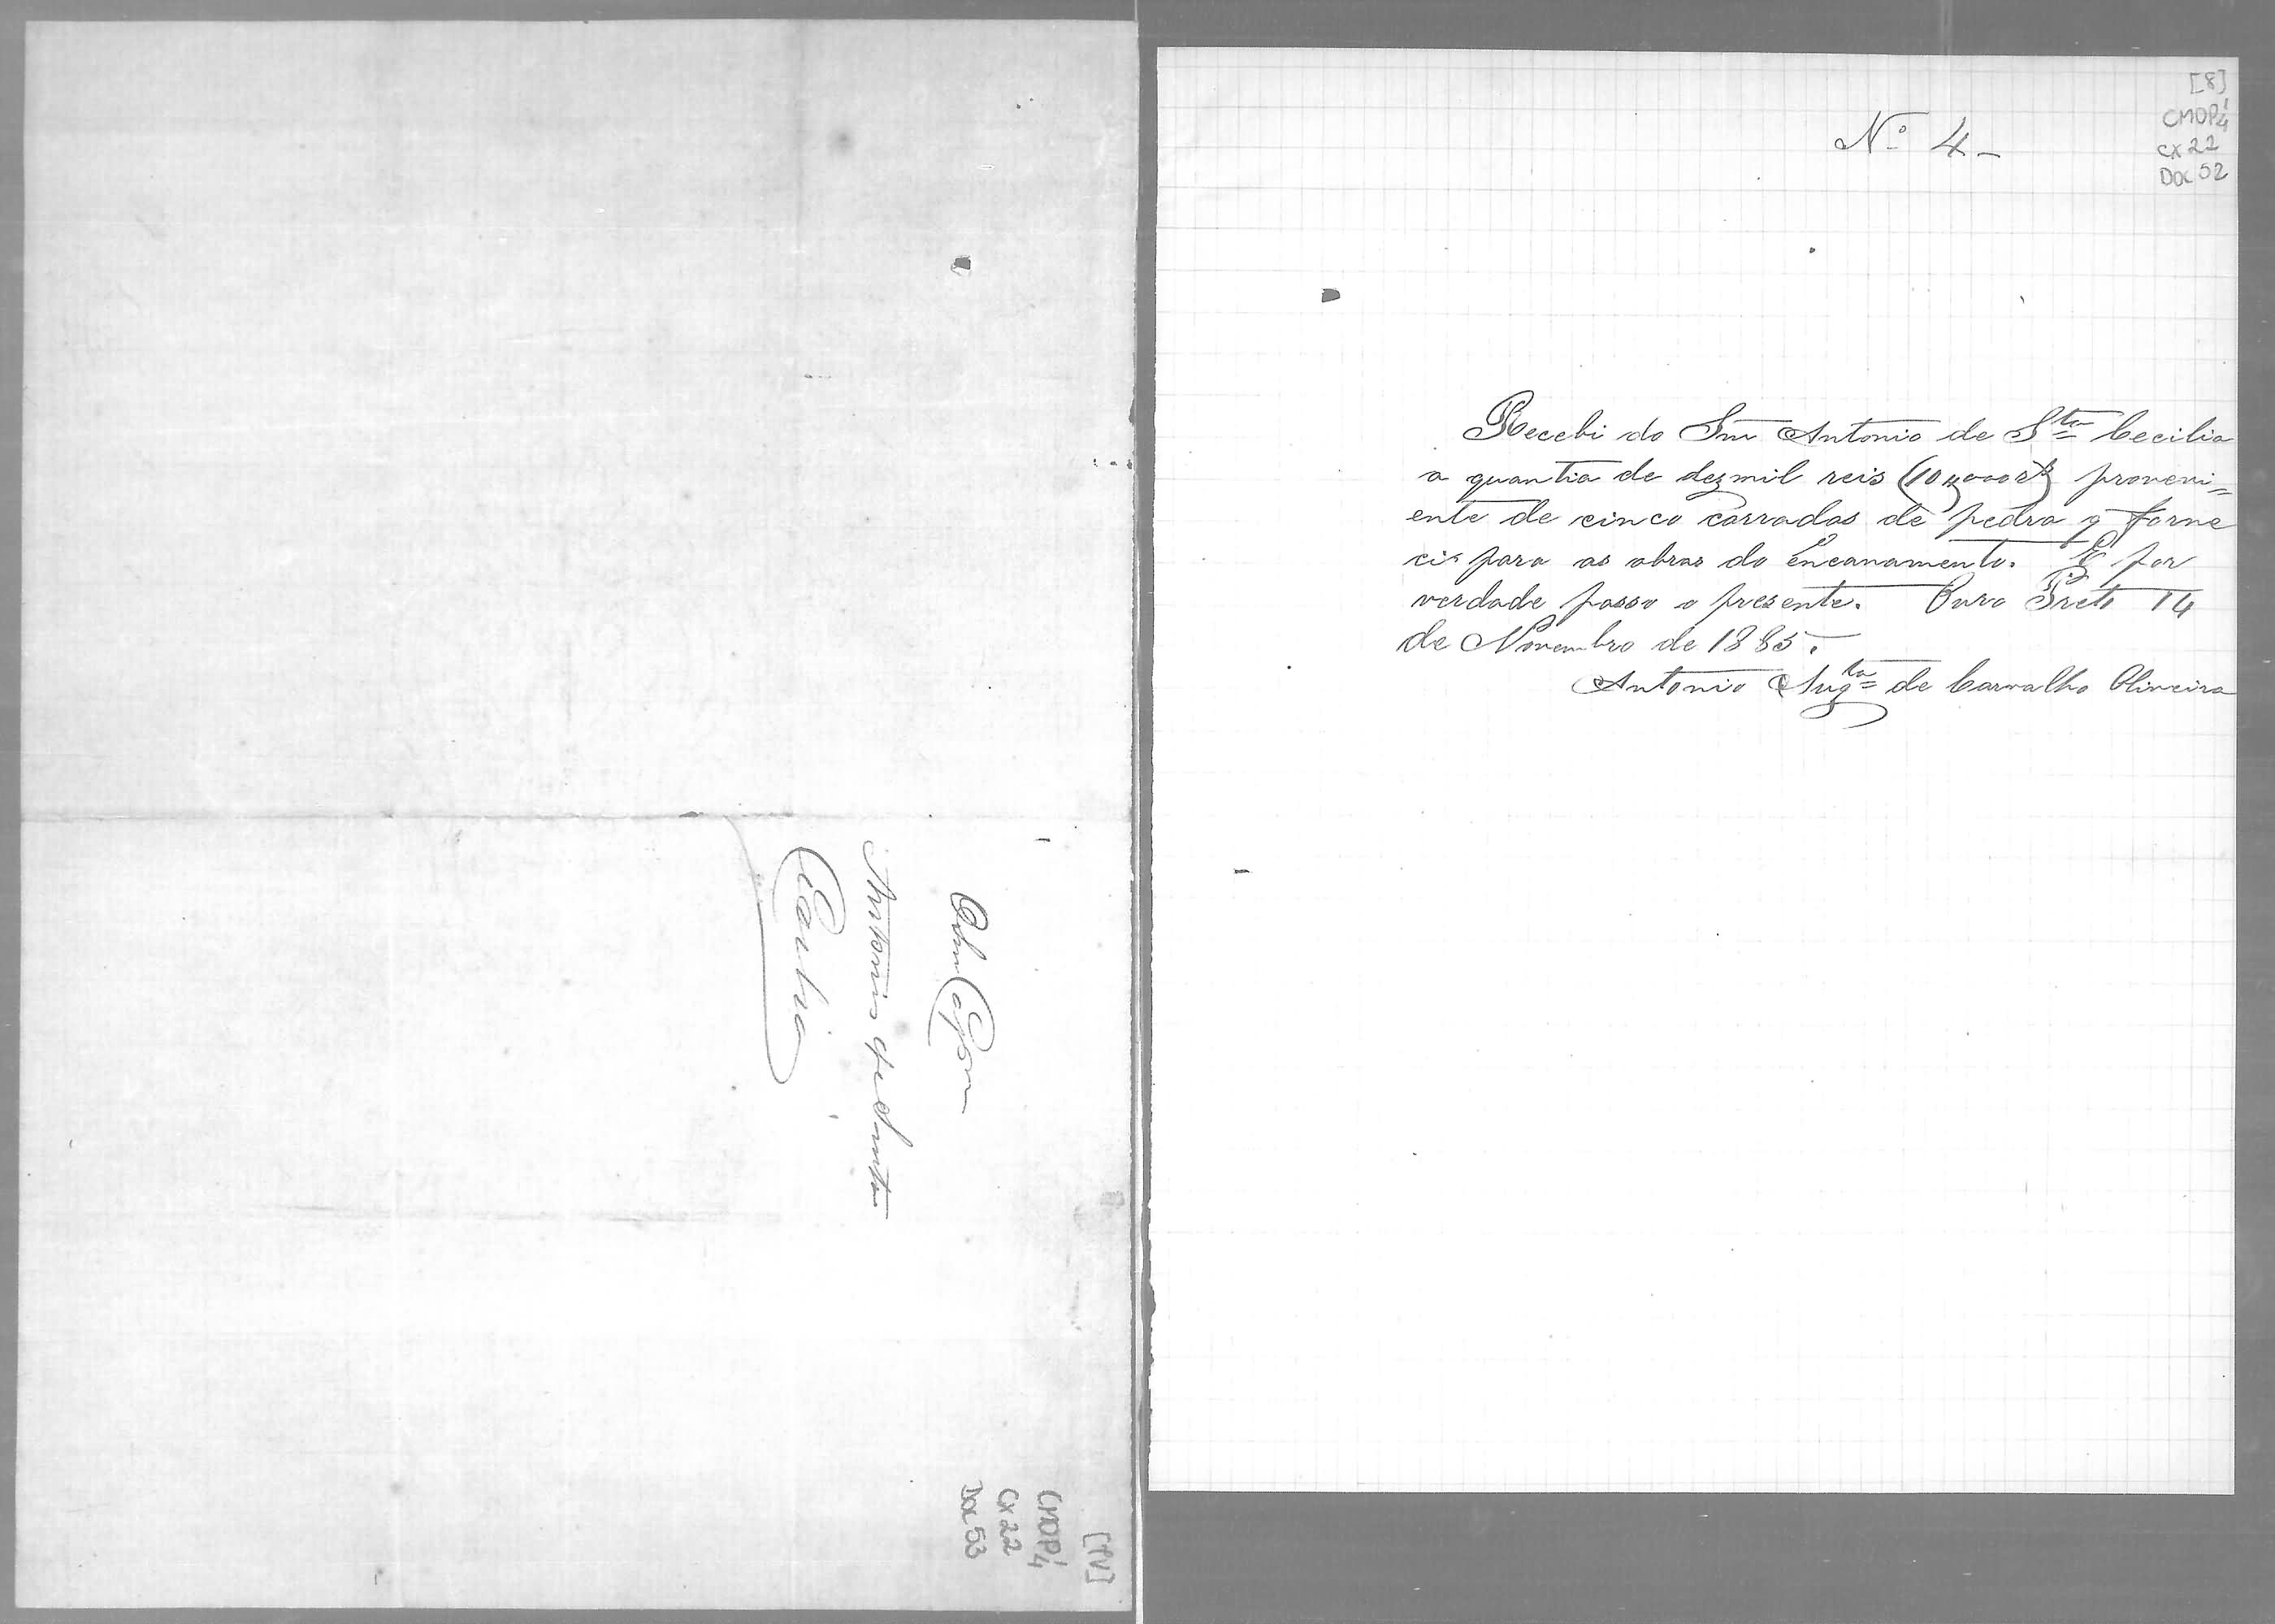 Antonio de Santa
Cecilia
[1V]
CMOP/4
CX 22
Doc 53
[8]
CMOP/4
CX 22
Doc 52
Nº 4-
Recebi do Snr Antonio de Sta Cecilia
a quantia de dez mil reis (10$000rs) proveni=
ente de cinco carradas de pedra q forne
ci para as obras do Encanamento. E por
verdade passo o presente. Ouro Preto 14
de Novembro de 1885.
Antonio Augto de Carvalho Oliveira